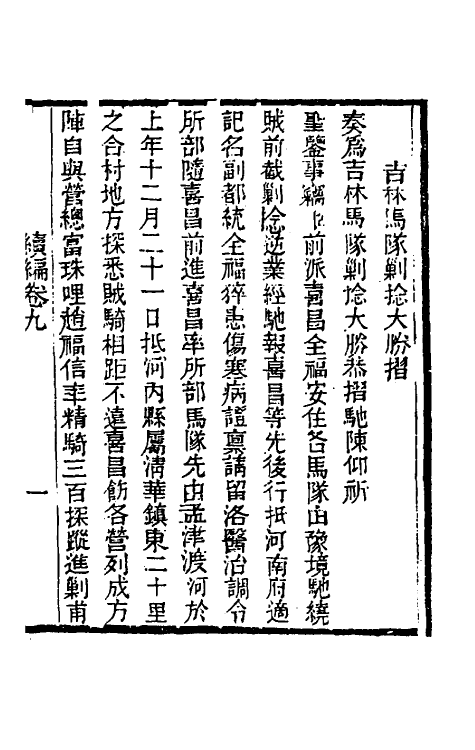 吉林馬隊剿捻大勝摺
奏爲吉林馬隊剿捻大勝恭摺馳陳仰祈
聖鑒事竊臣前派喜昌全福安住各馬隊由豫境馳繞
賊前截剿捻逆業經馳報喜昌等先後行抵河南府適
記名副都統全福猝患傷寒病證稟請留洛醫治調令
所部隨喜昌前進喜昌率所部馬隊先由孟津渡河於
上年十二月二十一日抵河內縣屬淸華鎮東二十里
之合村地方探悉賊騎相距不遠喜昌飭各營列成方
陣自與營總富珠哩趙福信率精騎三百探蹤進剿甫
續編卷九
一